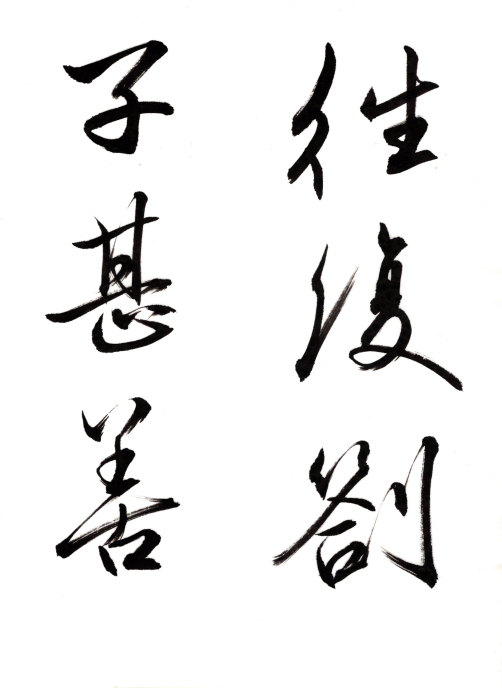 往復劄
子甚善